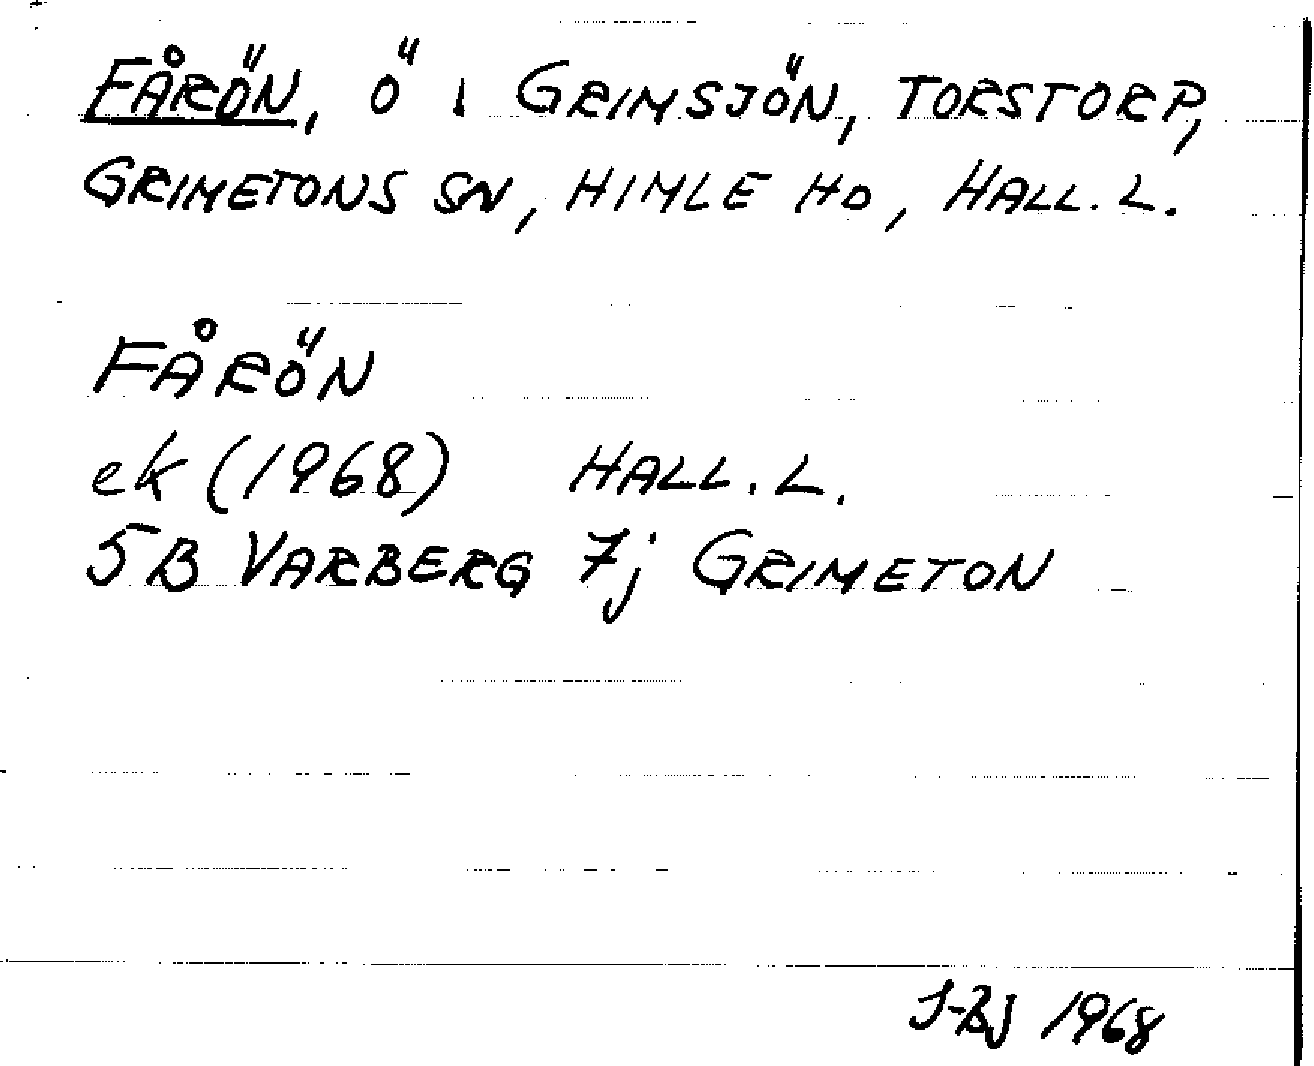 FÅRÖN, Ö I GRIMSJÖN, TORSTORP,
GRIMETONS SN, HIMLE HD, HALL. L.
FÅRÖN
ek (1968) HALL. L.
5B VARBERG 7j GRIMETON
J-BJ 1968